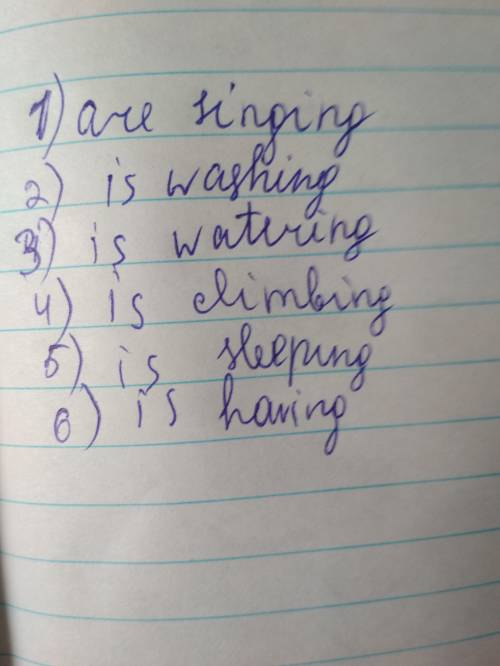 1) are singing
2) is washing
3) is watering
4) is climbing
5) is sleeping
6) is having